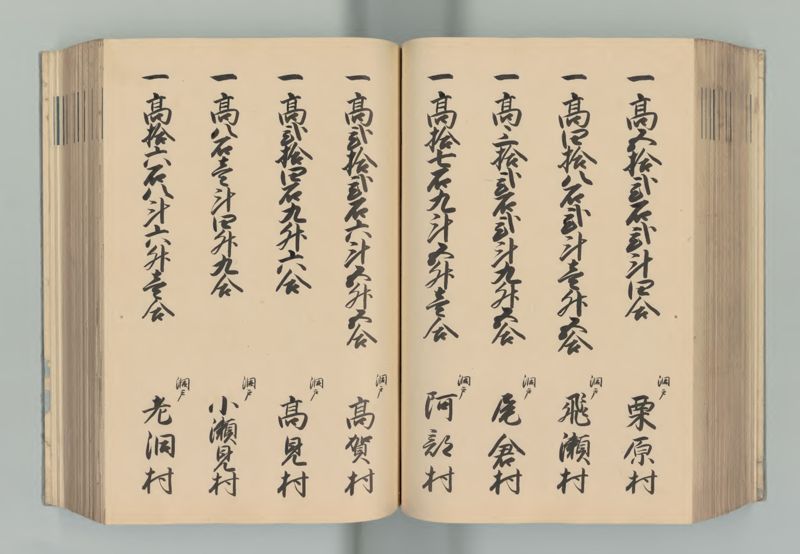 一高五拾弐石弐斗四合
洞戸
栗原村
一高四拾八石弐斗壱升五合
洞戸
飛瀬村
一高三拾弐石弐斗九升五合
洞戸
尾倉村
一高拾七石九斗五升壱合
洞戸
阿部村
一高弐拾弐石六斗五升五合
洞戸
高賀村
一高弐拾四石九升六合
洞戸
高見村
一高八石壱斗四升九合
洞戸
小瀬見村
一高拾六石八斗六升壱合
洞戸
老洞村